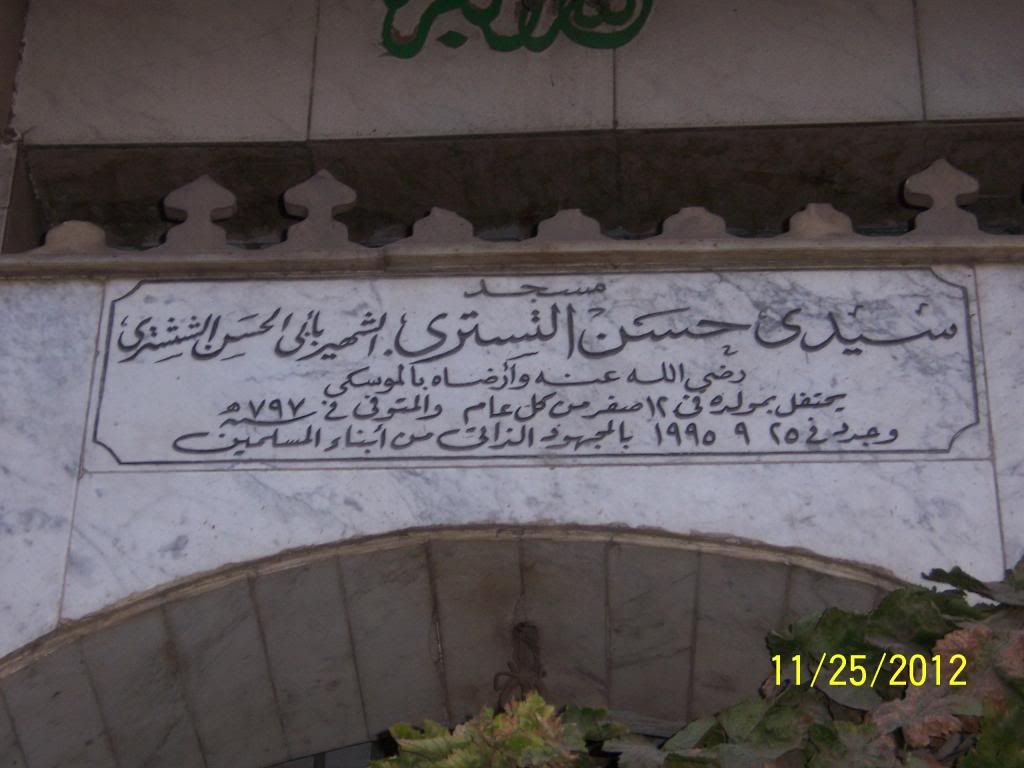 الله أكبر
مسجد
سيدى حسن التسترى. الشهير بأبى الحسن الششترى
رضي الله عنه وأرضاه بالموسكى
يحتفل بمولده فى ١٢ صفر من كل عام والمتوفى فى سنة ٧٩٧ هـ
وجدد فى ٢٥ ٩ ١٩٩٥ بالمجهود الذاتى من أبناء المسلمين
11/25/2012